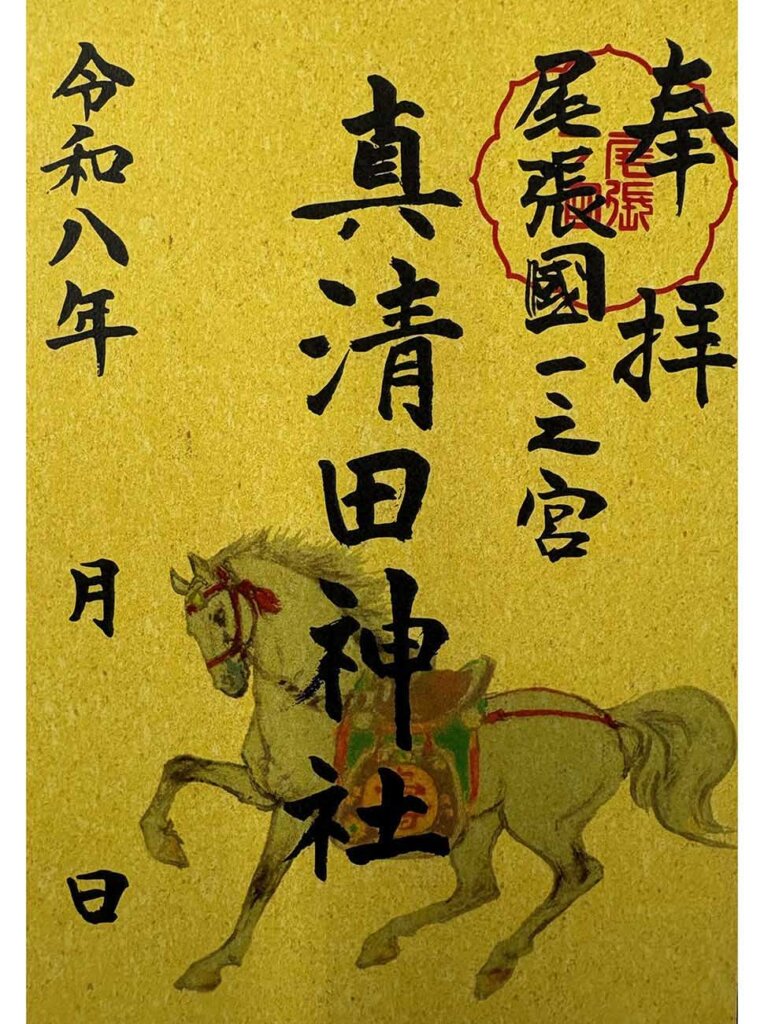 奉拝
尾張國一之宮
真清田神社
令和八年 月 日
尾張